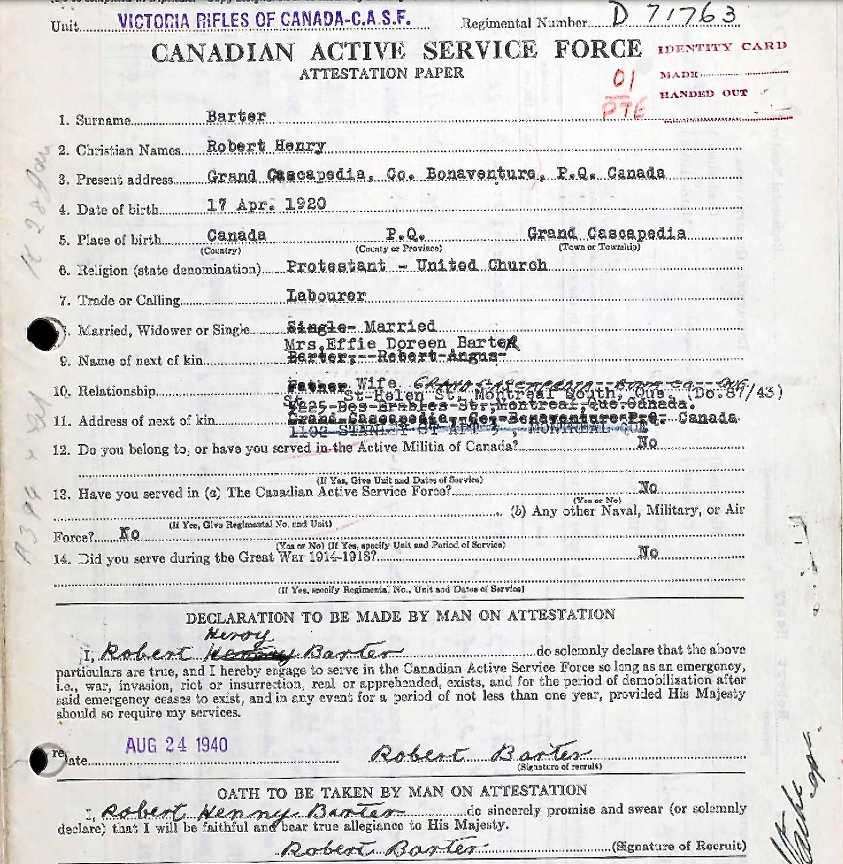 Unit VICTORIA RIFLES OF CANADA-C.A.S.F. Regimental Number D 71763
CANADIAN ACTIVE SERVICE FORCE
ATTESTATION PAPER
IDENTITY CARD
MADE
HANDED OUT
01
PTE
1. Surname Barter
2. Christian Names Robert Henry
3. Present address Grand Cascapedia, Co. Bonaventure, P.Q. Canada
4. Date of birth 17 Apr. 1920
5. Place of birth Canada P.Q. Grand Cascapedia
(Country) (County or Province) (Town or Township)
6. Religion (state denomination) Protestant - United Church
7. Trade or Calling Labourer
8. Married, Widower or Single Single- Married
Mrs. Effie Doreen Barter
9. Name of next of kin Barter, Robert Angus
10. Relationship Father Wife
St-Helen St, Montreal South, Que. (Do.87/43)
Des Erables St, Montreal, Que. Canada.
11. Address of next of kin Grand Cascapedia, Co. Bonaventure P.Q. Canada
1192 STANLEY ST APT 3, MONTREAL QUE
12. Do you belong to, or have you served in the Active Militia of Canada? No
(If Yes, Give Unit and Dates of Service)
13. Have you served in (a) The Canadian Active Service Force? No
(Yes or No)
(b) Any other Naval, Military, or Air
(If Yes, Give Regimental No. and Unit)
Force? No
(Yes or No) (If Yes, specify Unit and Period of Service)
14. Did you serve during the Great War 1914-1918? No
(If Yes, specify Regimental No., Unit and Dates of Service)
DECLARATION TO BE MADE BY MAN ON ATTESTATION
Henry
I, Robert Barter do solemnly declare that the above
particulars are true, and I hereby engage to serve in the Canadian Active Service Force so long as an emergency,
i.e., war, invasion, riot or insurrection, real or apprehended, exists, and for the period of demobilization after
said emergency ceases to exist, and in any event for a period of not less than one year, provided His Majesty
should so require my services.
Date AUG 24 1940 Robert Barter
(Signature of recruit)
OATH TO BE TAKEN BY MAN ON ATTESTATION
I, Robert Henry Barter do sincerely promise and swear (or solemnly
declare) that I will be faithful and bear true allegiance to His Majesty.
Robert Barter (Signature of Recruit)